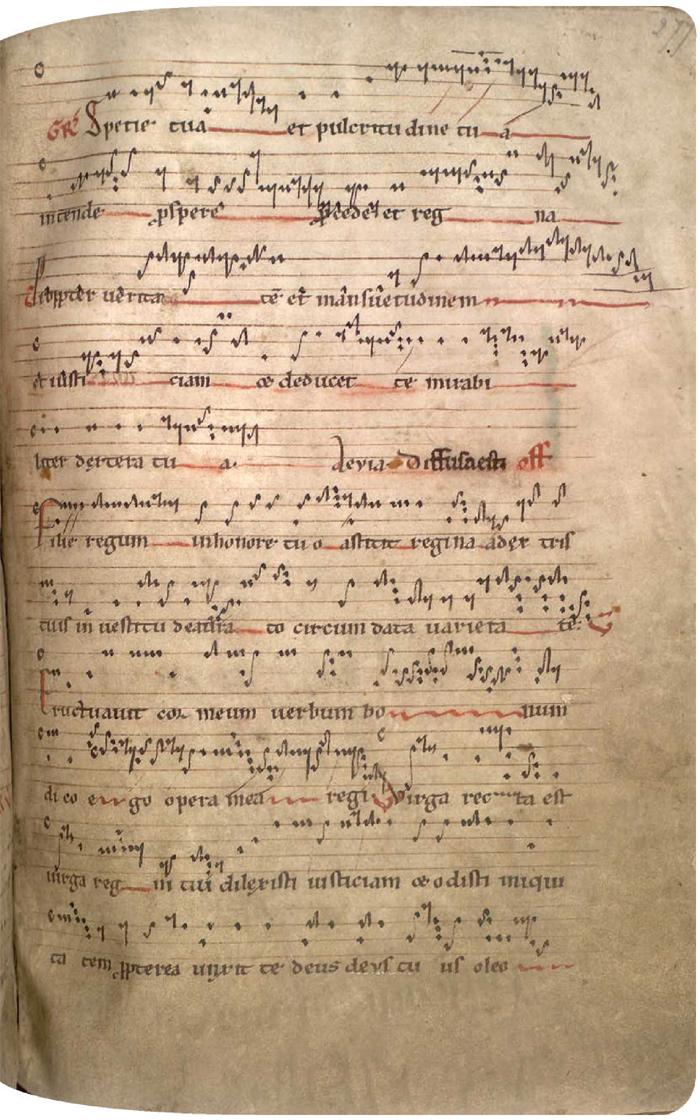 GR Specie tua et pulcritudine tua
intende pspere pcede et reg na
Propter uerita tē et mansuetudinem
et iusti ciam & deducet te mirabi
liter dextera tu a. Alleuia Diffusa est off
Filie regum in honore tuo astitit regina adex tris
tuis in uestitu deaura to circumdata uarieta te
Fructauit cor meum uerbum bo num
dico ego opera mea regi V Virga recta est
uirga reg ni tui dilexisti iusticiam & odisti iniqui
ta tem ppterea unxit te deus deus tu us oleo